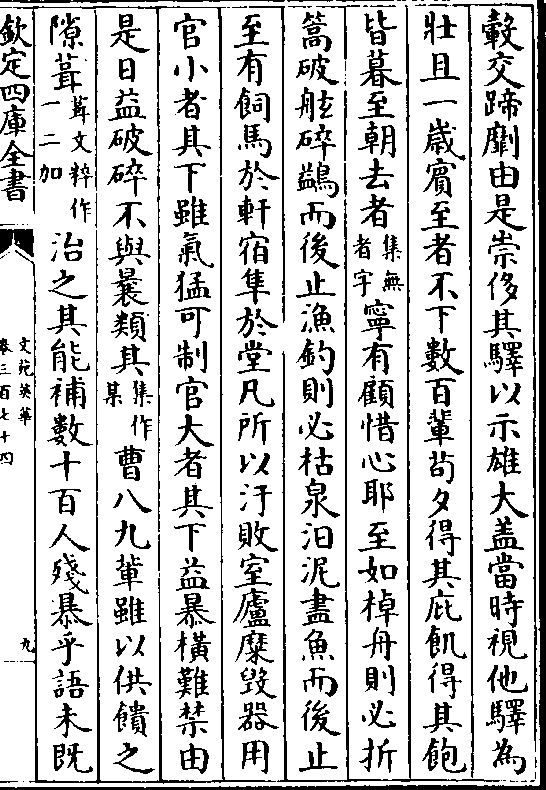 轂交蹄劘由是崇侈其驛以示雄大盖當時視他驛為
壮且一歲賓至者不下數百輩茍夕得其庇飢得其飽
皆暮至朝去者集無者字寧有顧惜心耶至如棹舟則必折
篙破舷碎鷁而後止漁釣則必枯泉汩泥盡魚而後止
至有飼馬於軒宿隼於堂凡所以汙敗室廬糜毀器用
官小者其下雖氣猛可制官大者其下益暴橫難禁由
是日益破碎不與曩類其集作某曹八九輩雖以供饋之
隙葺葺文粹作一二加治之其能補數十百人殘暴乎語未既
欽定四庫全書
文苑英華
卷三百七十四
九